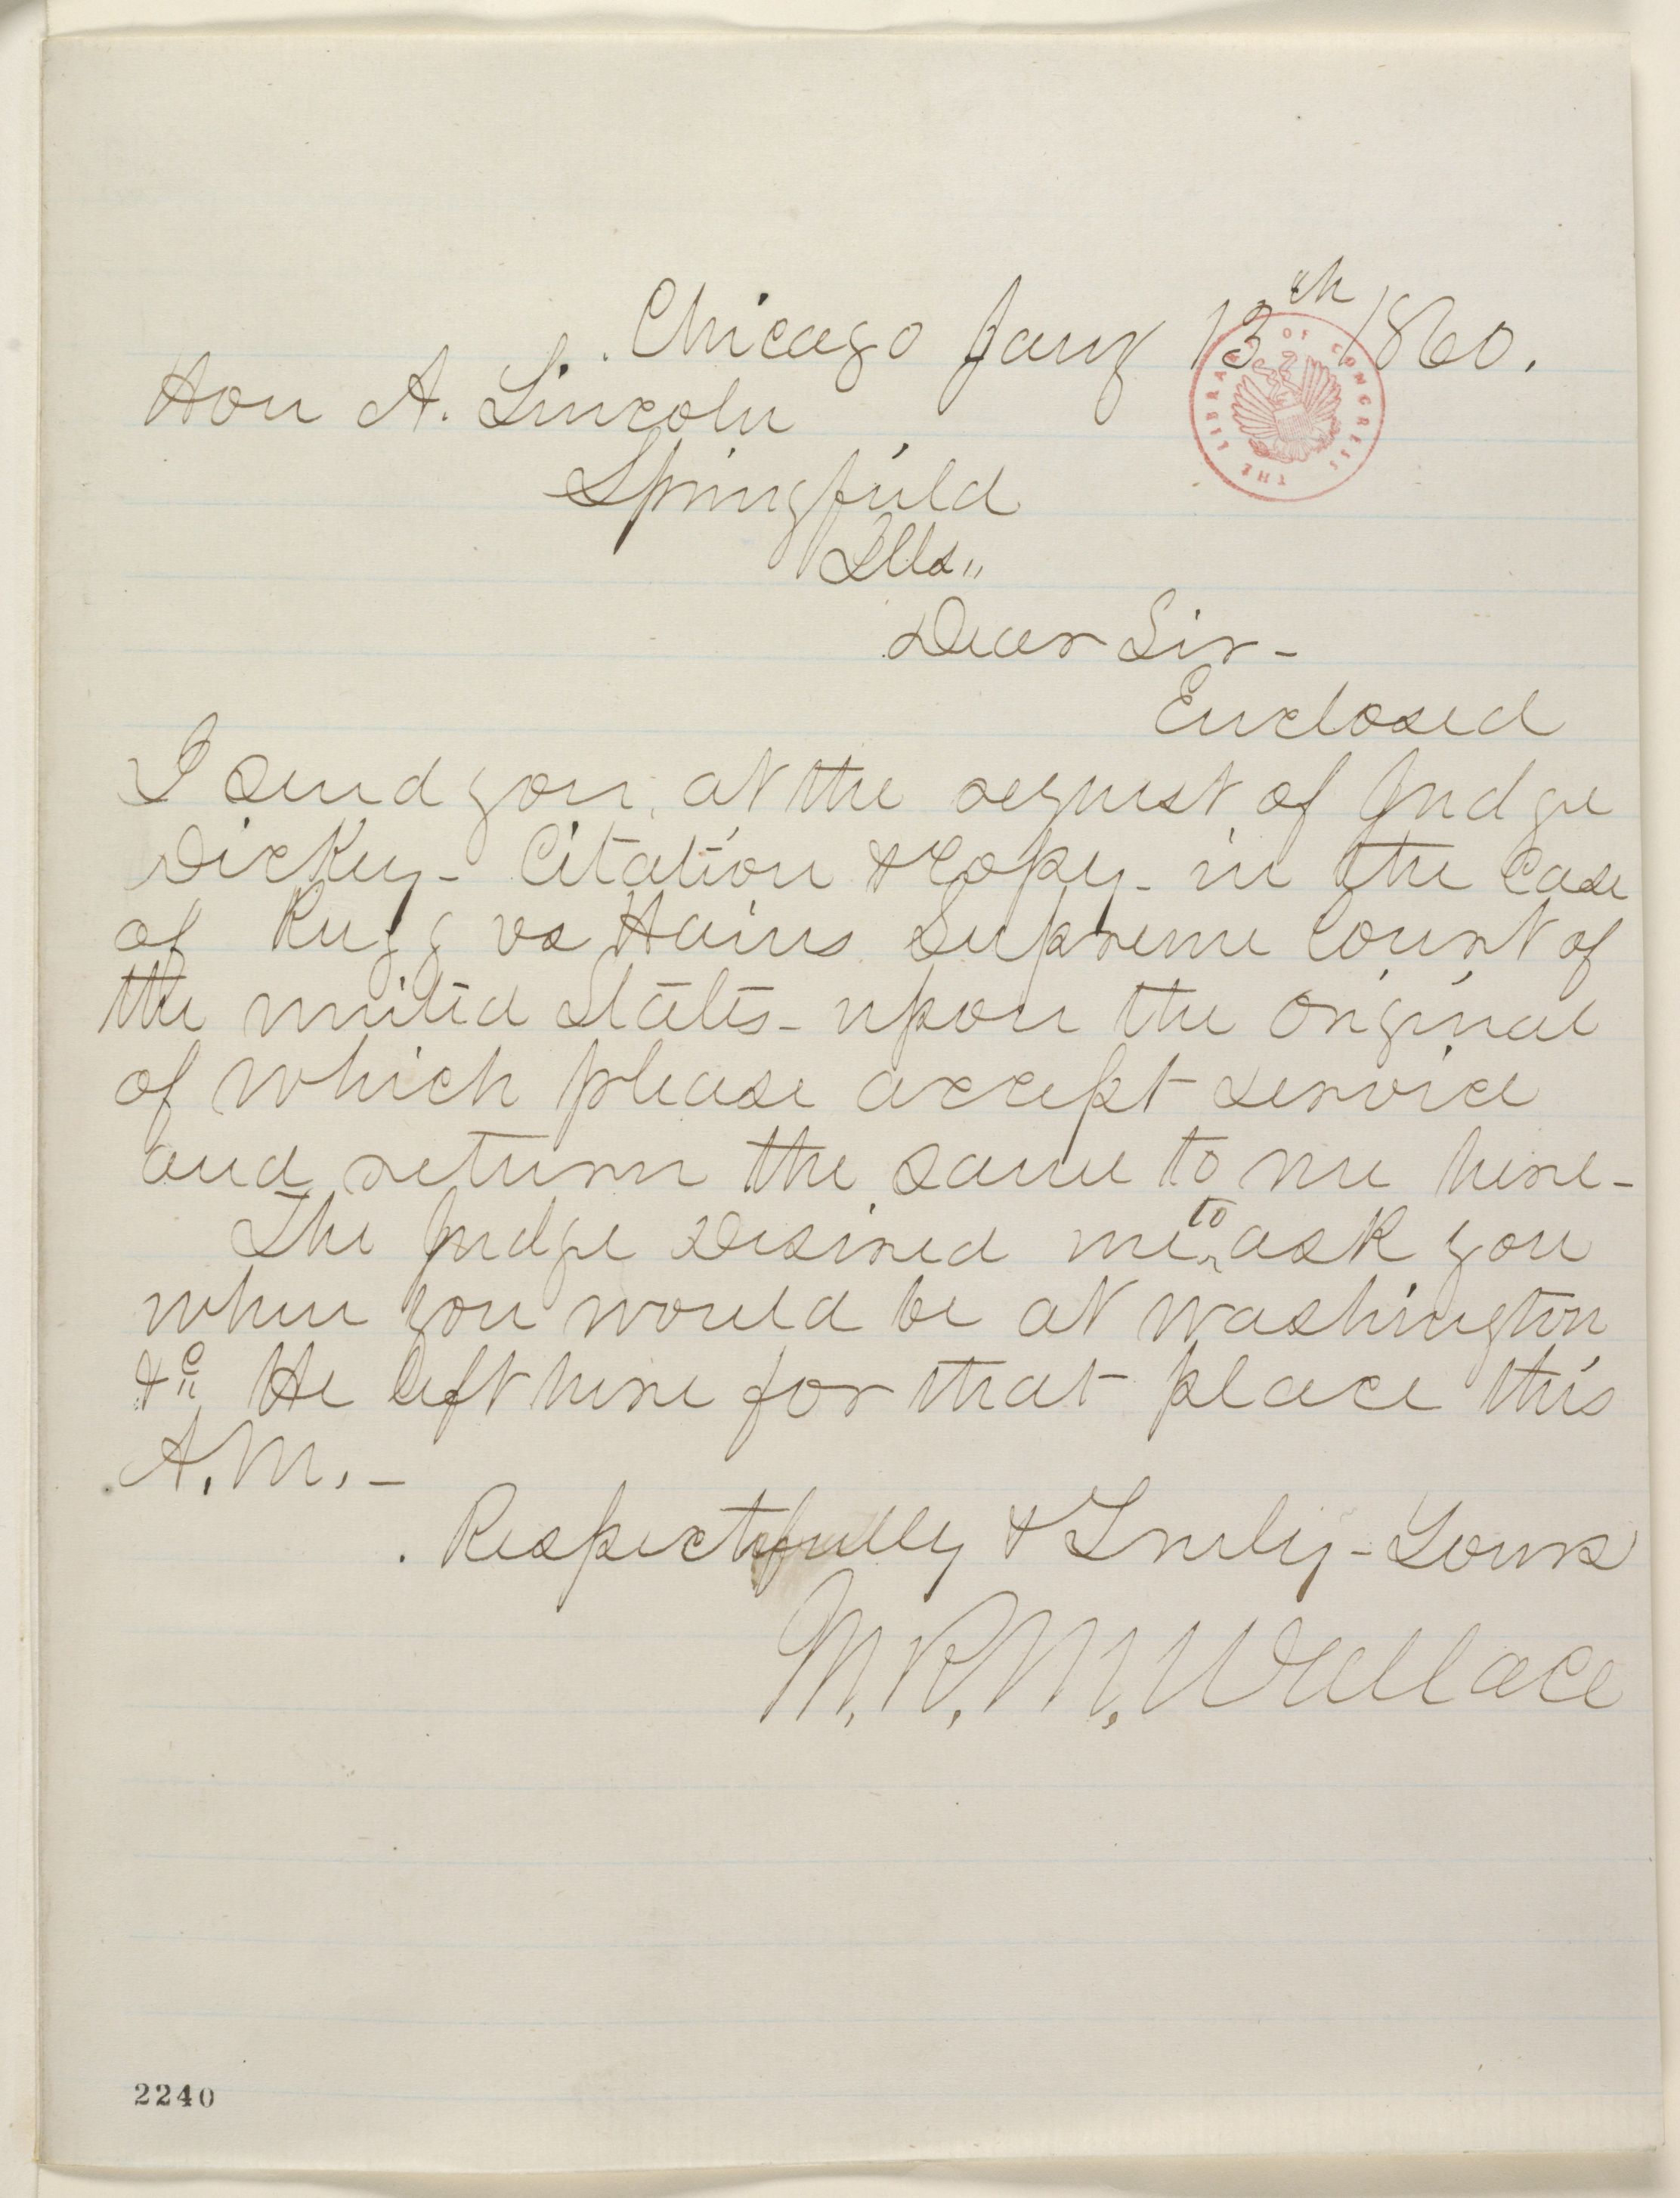 Chicago Jany 13th 1860.
Hon A. Lincoln
Springfield
Ills"
Dear Sir -
Enclosed
I send you, at the request of Judge
Dickey - Citation & Copy - in the Case
of Rugg vs Hains Supreme Court of
the united States - upon the original
of which please accept service
and return the same to me here -
The Judge Desired me to ask you
when you would be at Washington
&c" He left here for that place this
A.M. -
Respectfully & Truly - Yours
M. R. M. Wallace
THE LIBRARY OF CONGRESS
2240